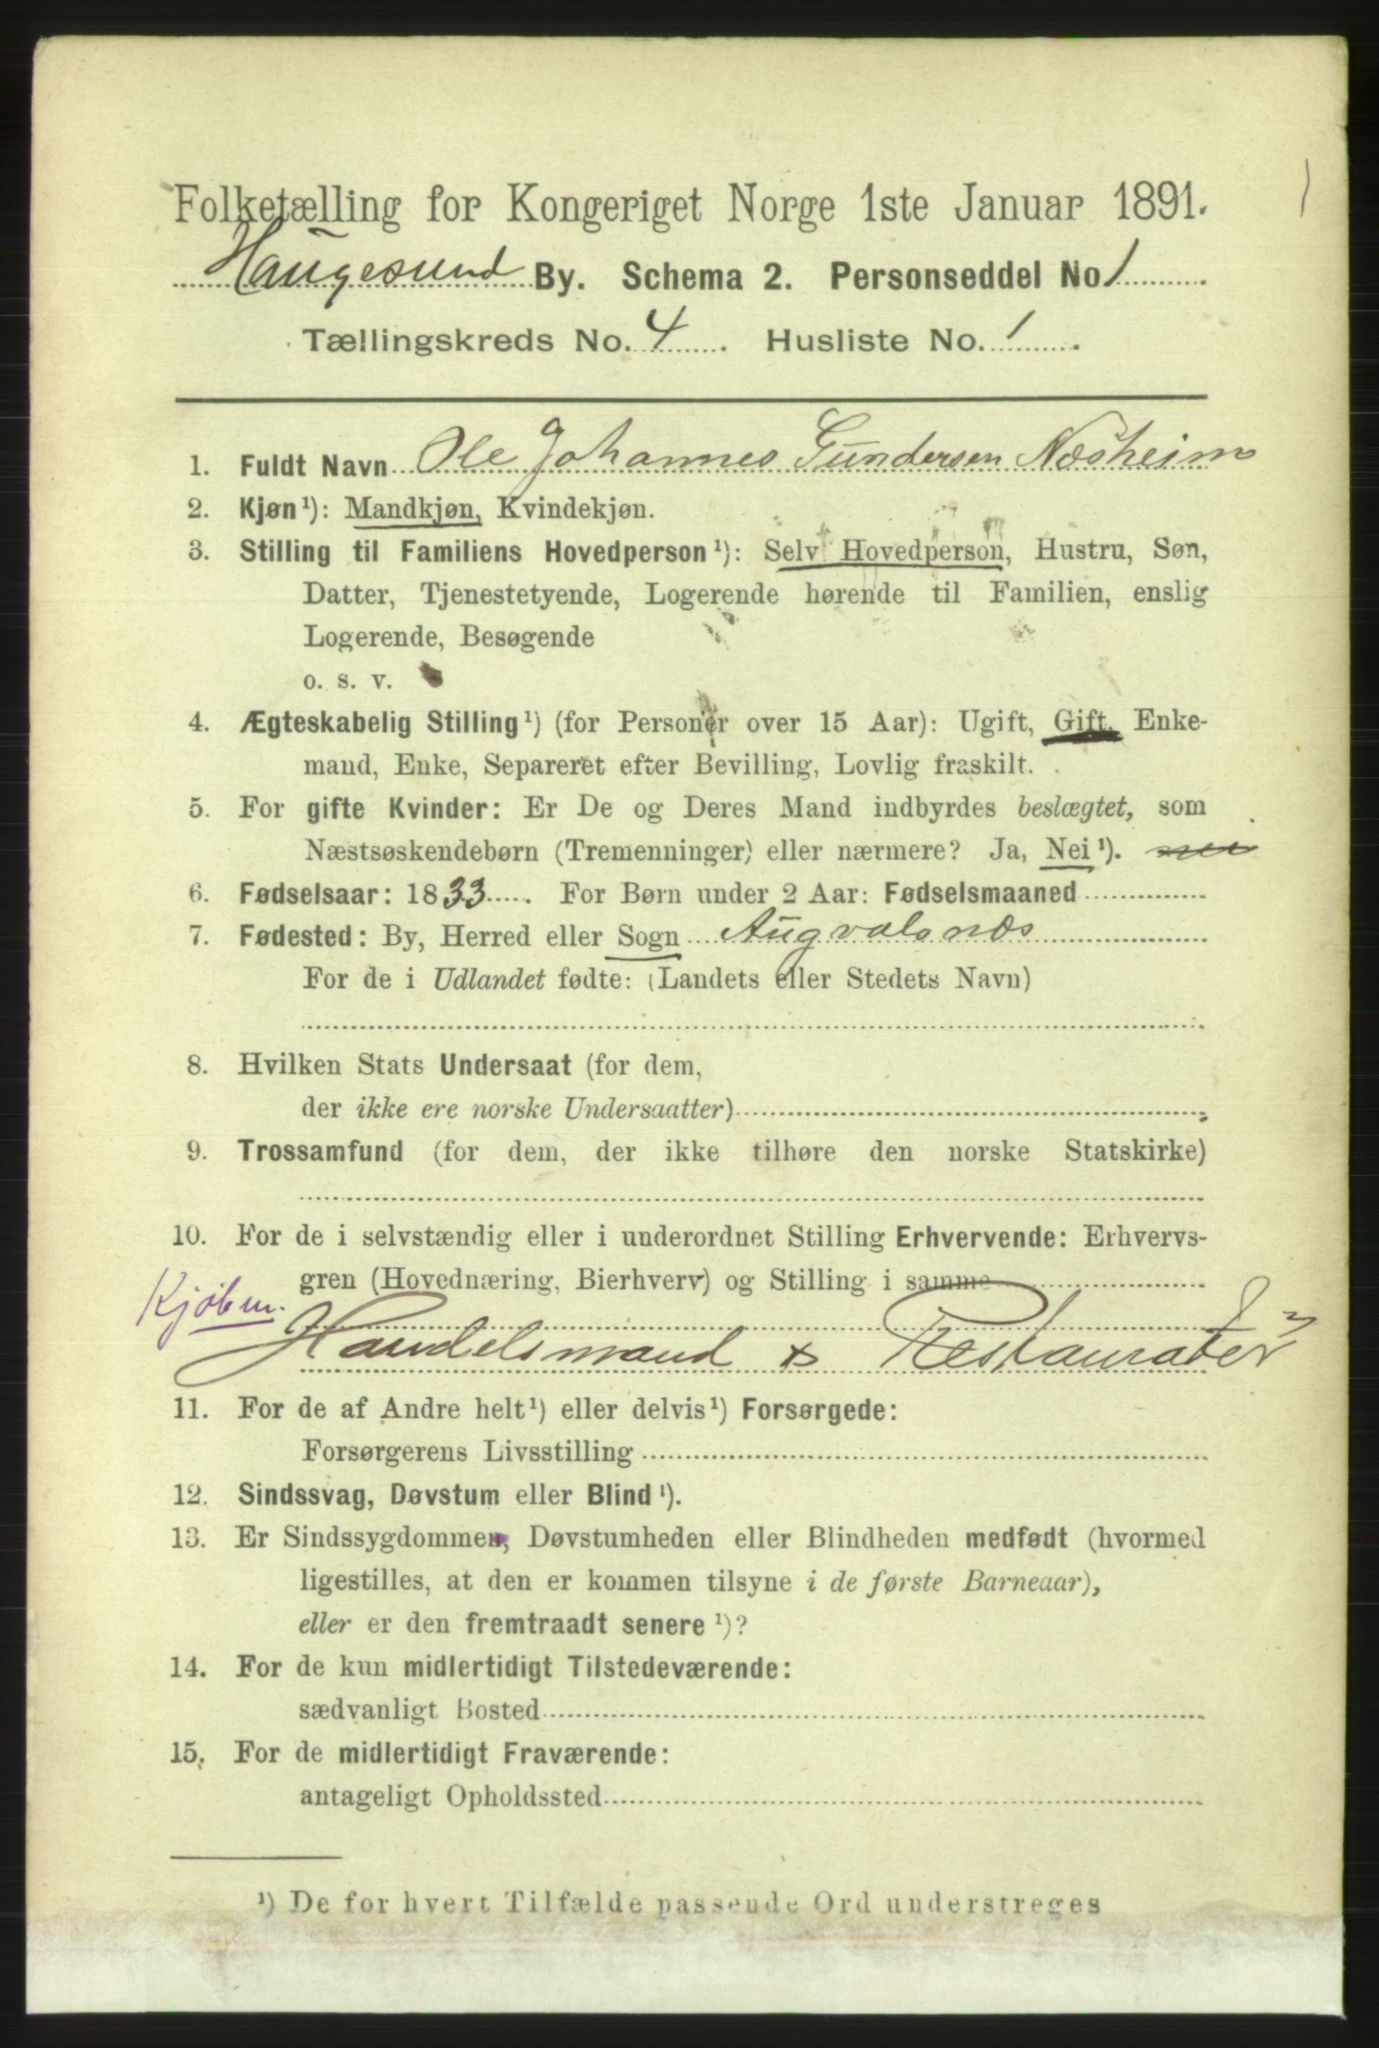 Folketælling for Kongeriget Norge 1ste Januar 1891.
Haugesund By. Schema 2. Personseddel No 1
Tællingskreds No. 4. Husliste No. 1.
1. Fuldt Navn Ole Johannes Gundersen Næsheim
2. Kjøn¹): Mandkjøn, Kvindekjøn.
3. Stilling til Familiens Hovedperson¹): Selv Hovedperson, Hustru, Søn,
Datter, Tjenestetyende, Logerende hørende til Familien, enslig
Logerende, Besøgende
o. s. v.
4. Ægteskabelig Stilling¹) (for Personer over 15 Aar): Ugift, Gift, Enke-
mand, Enke, Separeret efter Bevilling, Lovlig fraskilt.
5. For gifte Kvinder: Er De og Deres Mand indbyrdes beslægtet, som
Næstsøskendebørn (Tremenninger) eller nærmere? Ja, Nei¹). nei
6. Fødselsaar: 1833. For Børn under 2 Aar: Fødselsmaaned
7. Fødested: By, Herred eller Sogn Augvalsnæs
For de i Udlandet fødte: (Landets eller Stedets Navn)
8. Hvilken Stats Undersaat (for dem,
der ikke ere norske Undersaatter)
9. Trossamfund (for dem, der ikke tilhøre den norske Statskirke)
10. For de i selvstændig eller i underordnet Stilling Erhvervende: Erhvervs-
gren (Hovednæring, Bierhverv) og Stilling i samme
Kjøbm.
Handelsmand & Restauratør
11. For de af Andre helt¹) eller delvis¹) Forsørgede:
Forsørgerens Livsstilling
12. Sindssvag, Døvstum eller Blind¹).
13. Er Sindssygdommen, Døvstumheden eller Blindheden medfødt (hvormed
ligestilles, at den er kommen tilsyne i de første Barneaar),
eller er den fremtraadt senere¹)?
14. For de kun midlertidigt Tilstedeværende:
sædvanligt Bosted
15. For de midlertidigt Fraværende:
antageligt Opholdssted
¹) De for hvert Tilfælde passende Ord understreges